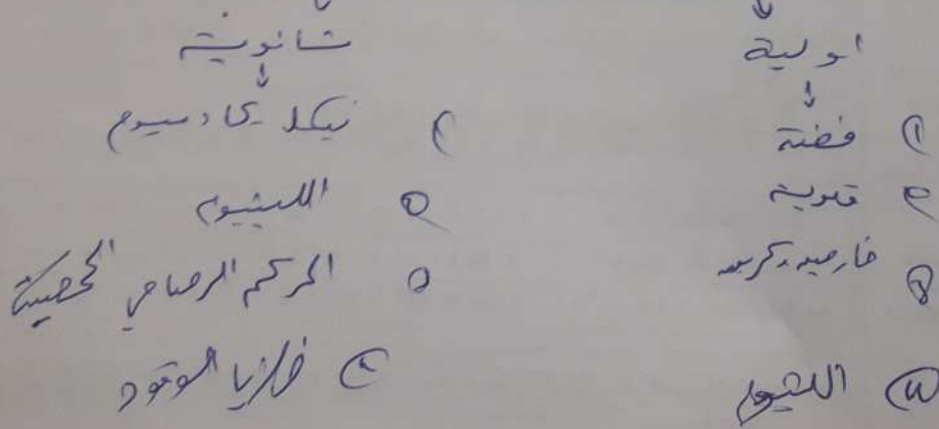 اولية
① فضة
② قلوية
③ خارصين كربون
④ الليثيوم
ثانوية
نيكل كادميوم
الليثيوم
المركم الرصاصي الحمضية
خلايا الوقود